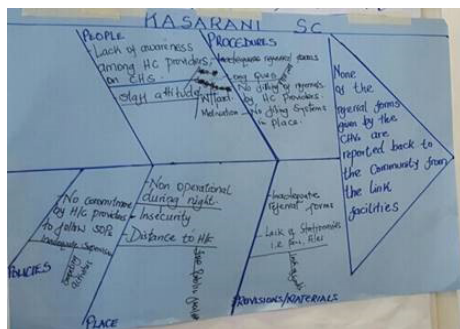 KASARANI SC
PEOPLE
- Lack of awareness
among HC providers
on CHS.
Staff attitude
PROCEDURES
- Inadequate referral forms
No filling of referrals
by HC providers.
- No filing Systems
in place.
Motivation
None
of the
referral forms
given by the
CHVs are
reported back to
the community from
the link
facilities
No commitment
by H/C providers
to follow SOPs
Inadequate Supervision
POLICIES
- Non operational
during night
- Insecurity
- Distance to H/F
PLACE
- Inadequate
referral forms
- Lack of Stationeries
i.e pens, Files
PROVISIONS/MATERIALS